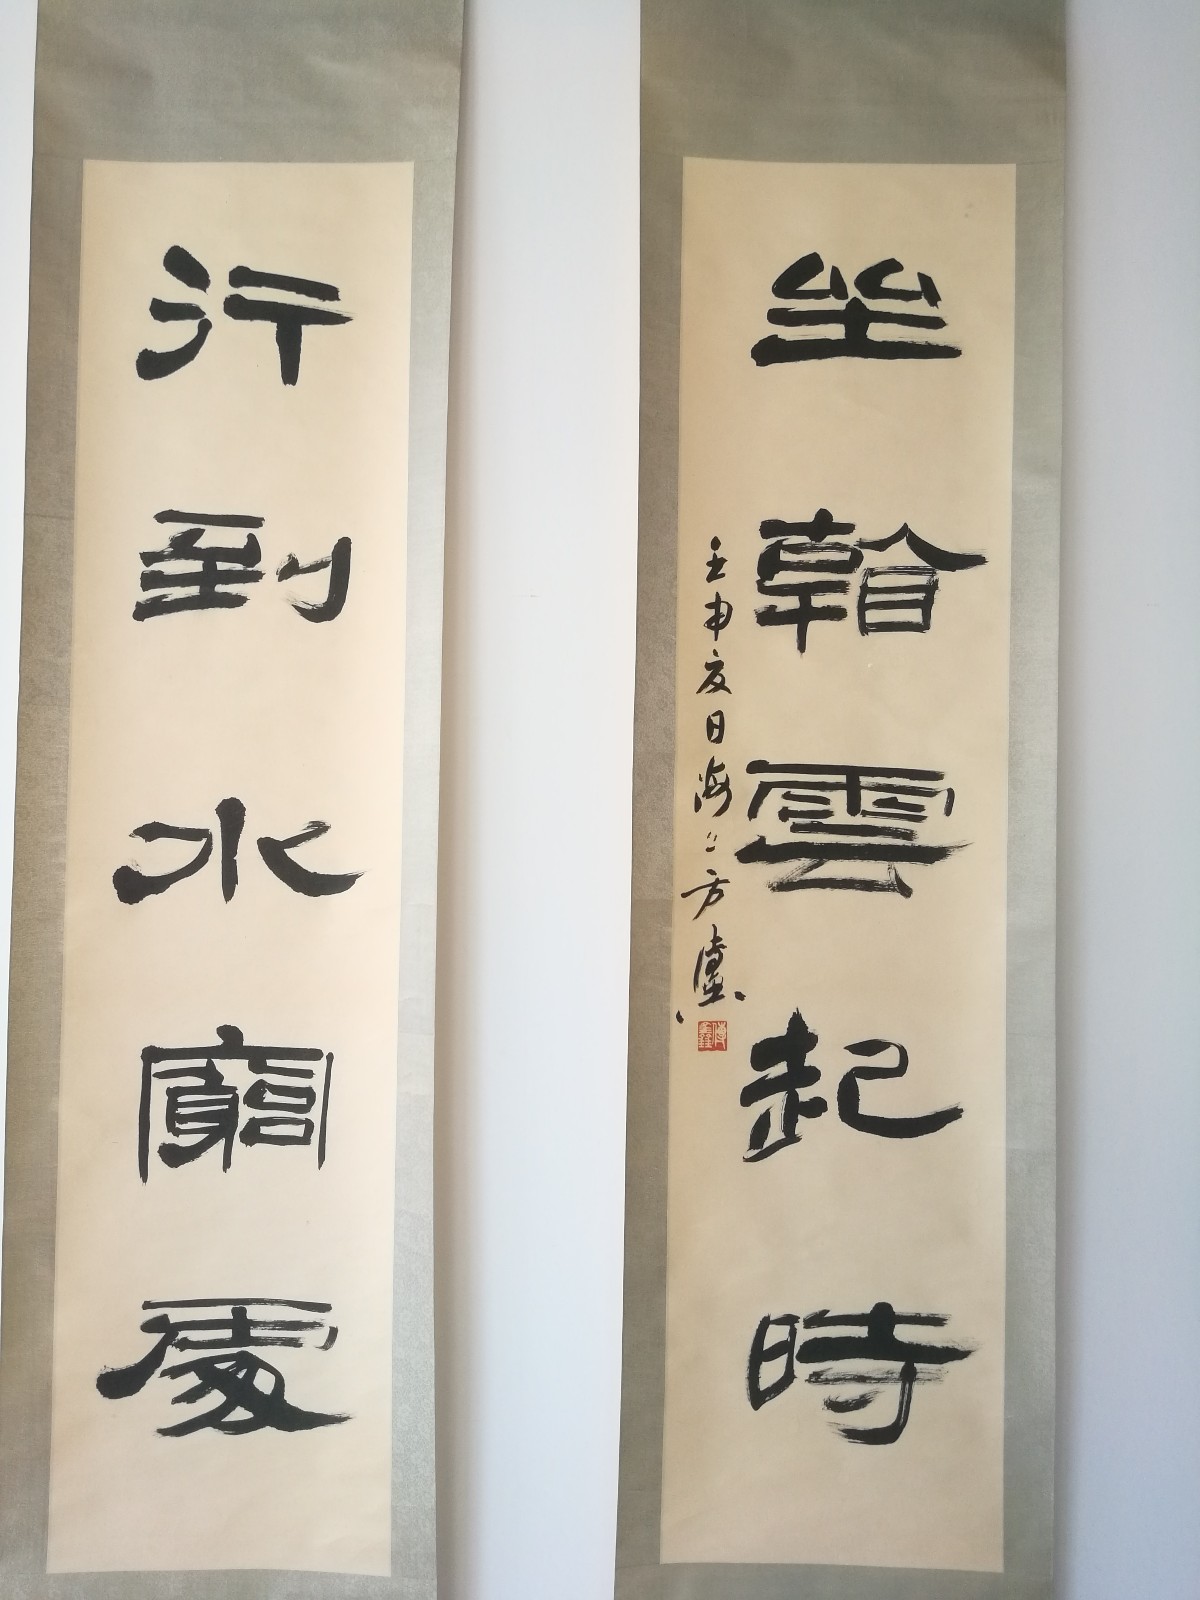 行到水窮處
坐看雲起時
壬申夏日海上方傳鑫
傳鑫